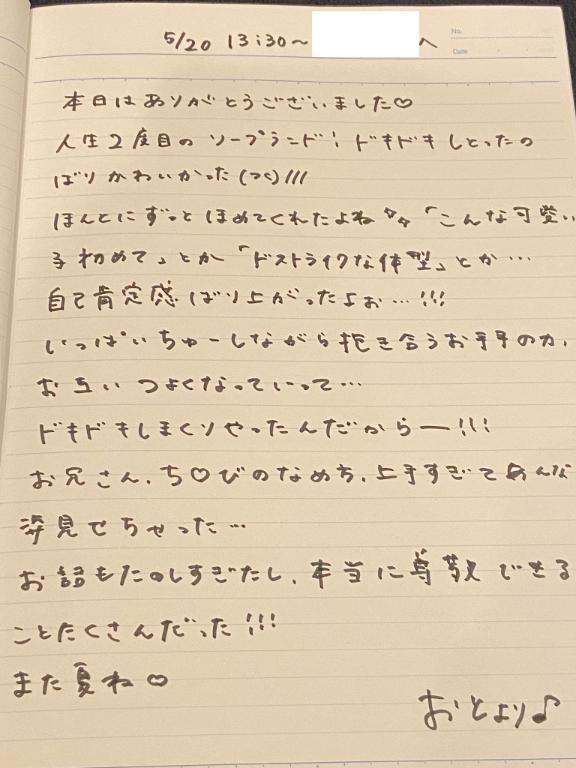 No.
Date
5/20 13:30〜 へ
本日はありがとうございました♡
人生2度目のソープランド! ドキドキしとったの
ばりかわいかった(つ⊂)///
ほんとにずっとほめてくれたよね 「こんな可愛い
子初めて」とか「ドストライクな体型」とか…
自己肯定感ばり上がったよぉ…!!!
いっぱいちゅーしながら抱き合うお手手の力、
お互いつよくなっていって…
ドキドキしまくりやったんだからー!!!
お兄さん、ち♡びのなめ方、上手すぎてあんな
姿見せちゃった…
お話もたのしすぎたし、本当に尊敬できる
ことたくさんだった!!!
また夏ね♡
おとより♪